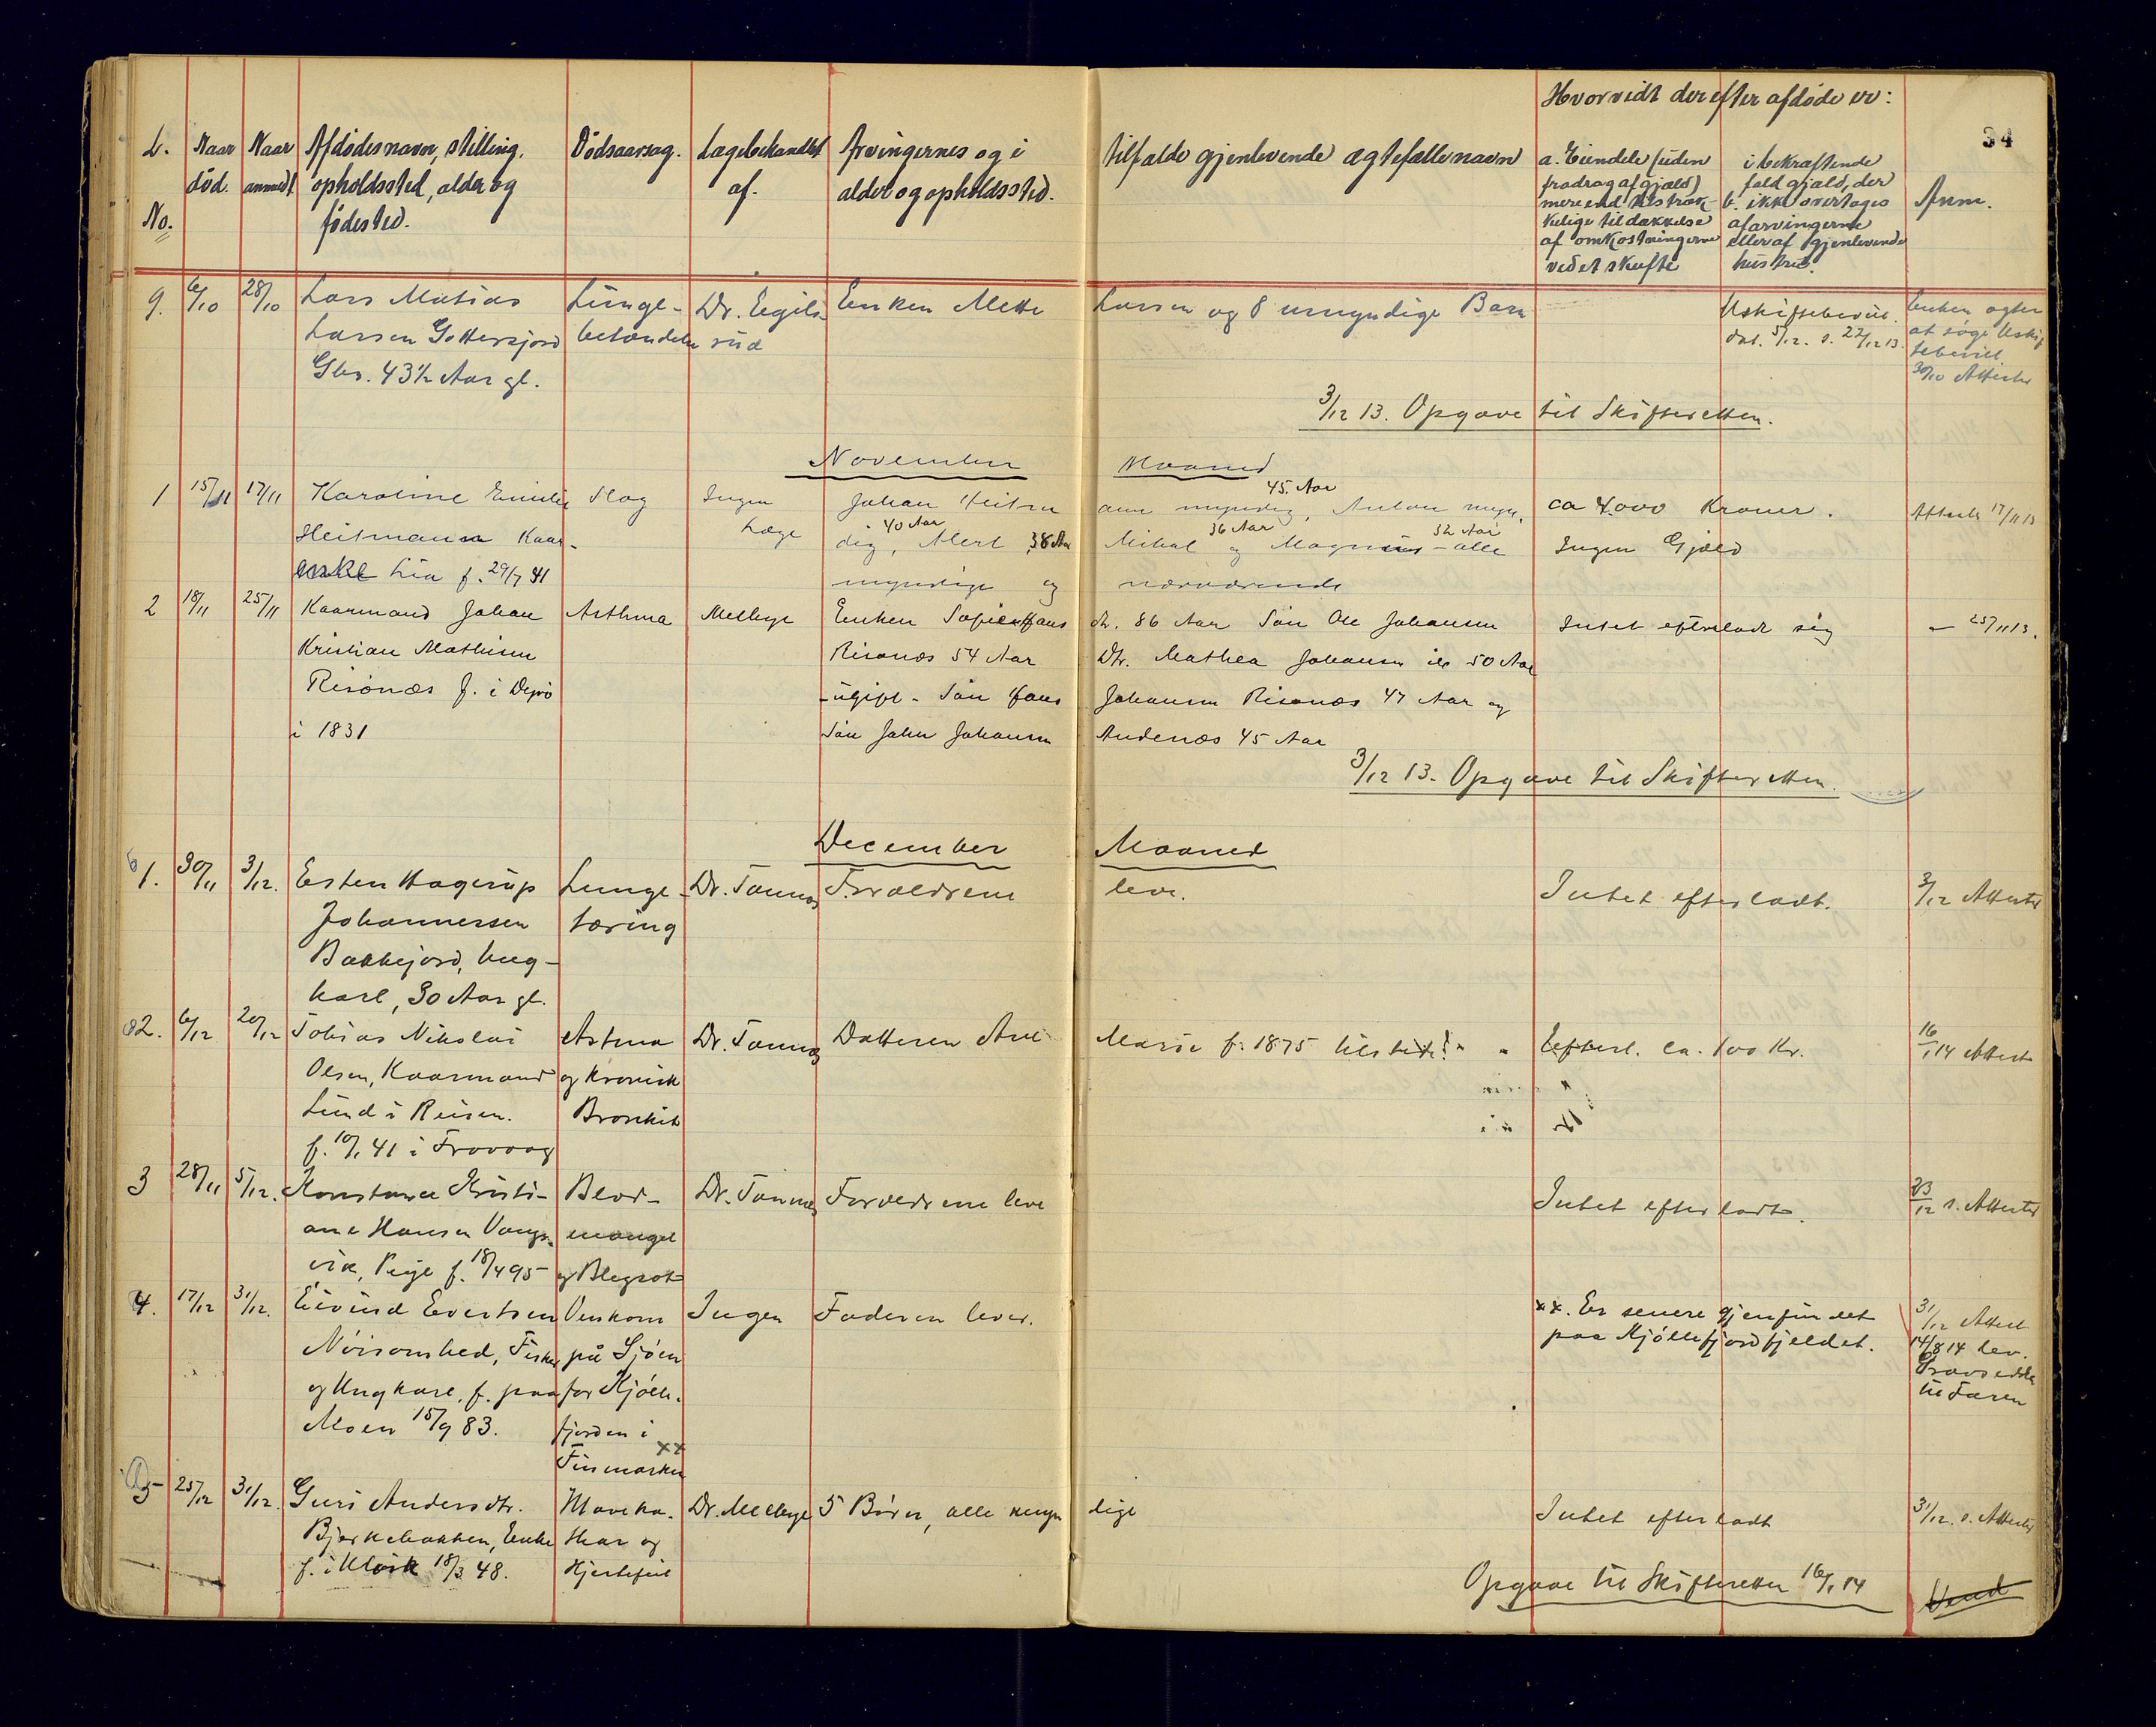 Hvorvidt der efter afdøde er:
34
L. No.
Naar død.
Naar anmeldt
Afdødes navn, stilling,
opholdssted, alder og
fødested.
Dödsaarsag.
Lægebehandlet
af.
Arvingernes og i
alder og opholdssted.
tilfælde gjenlevende ægtefælles navn
a. Eiendele (uden
fradrag af gjæld)
mere end tilstræk-
kelige til dækkelse
af omkostningerne
ved et skifte
i bekræftende
fald gjæld, der
b. ikke overtages
af arvingerne
eller af gjenlevende
hustru.
Anm.
9. 6/10 28/10 Lars Matias Lunge- Dr. Egils- Enken Mette Larsen og 8 umyndige Barn Uskiftebevil. Enken agter
Larsen Gottersjord betændelse rud dat. 5/12. s. 27/12 13. at søge Uskif
Gbr. 43½ Aar gl. tebevill.
30/10 Attester
3/12 13. Opgave til Skifteretten.
November Maaned
1 15/11 17/11 Karoline Emilie Slag Ingen Johan Heitm ann myndig, 45. Aar Anton myn. ca 4.000 Kroner. Attest 17/11 13
Heitmann Kaar- Læge dig, 40 Aar Alert 38 Aar Mikal 36 Aar og Magnus 32 Aar - alle Ingen Gjæld
enke Lia f. 29/7 41 myndige og nærværende
2 18/11 25/11 Kaarmand Johan Asthma Mellbye Enken Sofie Hans dtr. 86 Aar Søn Ole Johansen Intet efterladt sig — 25/11 13.
Kristian Mathisen Risønæs 54 Aar Dtr. Mathea Johansen 50 Aar
Risönæs f. i Dyrö - ugift - Søn Hans Johansen Risønæs 47 Aar og
i 1831 Søn Johan Johansen Andenæs 45 Aar
3/12 13. Opgave til Skifteretten.
December Maaned
1. 30/11 3/12. Esten Hagerup Lunge- Dr. Tønnes Forældrene leve. Intet efterladt. 3/12 Attester
Johannessen tæring
Bakkejord, Ung-
karl, 30 Aar gl.
2. 6/12 20/12 Tobias Nikolai Astma Dr. Tønnes Datteren Ane Marie f. 1875 tilstede. Efterl. ca. 100 Kr. 16/1 14 Attest
Olsen, Kaarmand og kronisk
Lund i Reisen. Bronkit
f. 10/1 41 i Frovaag
3 28/11 5/12. Konstance Kristi- Blod- Dr. Tønnes Forældrene leve Intet efterladt. 23/12 s. Attester
ane Hansen Vangs- mangel
vik, Peige f. 18/4 95 og Blegsot
4. 17/12 31/12. Eivind Evertsen Omkom Ingen Faderen lever. xx. Er senere gjenfundet 31/12 Attest
Nöisomhed, Fisker på Sjöen paa Kjöllefjordfjeldet. 14/8 14 lev.
og Ungkarl, f. paa for Kjölle- Gravseddel
Moen 15/9 83. fjorden i til Faren
Finmarken xx
5 25/12 31/12. Guri Andersdtr. Maveka- Dr. Mellbye 5 Börn, alle myn dige Intet efterladt 31/12. s. Attester
Bjerkebakken, Enke thar og
f. i 18/3 48. Hjertefeil
Opgave til Skifteretten 16/1 14
Vend